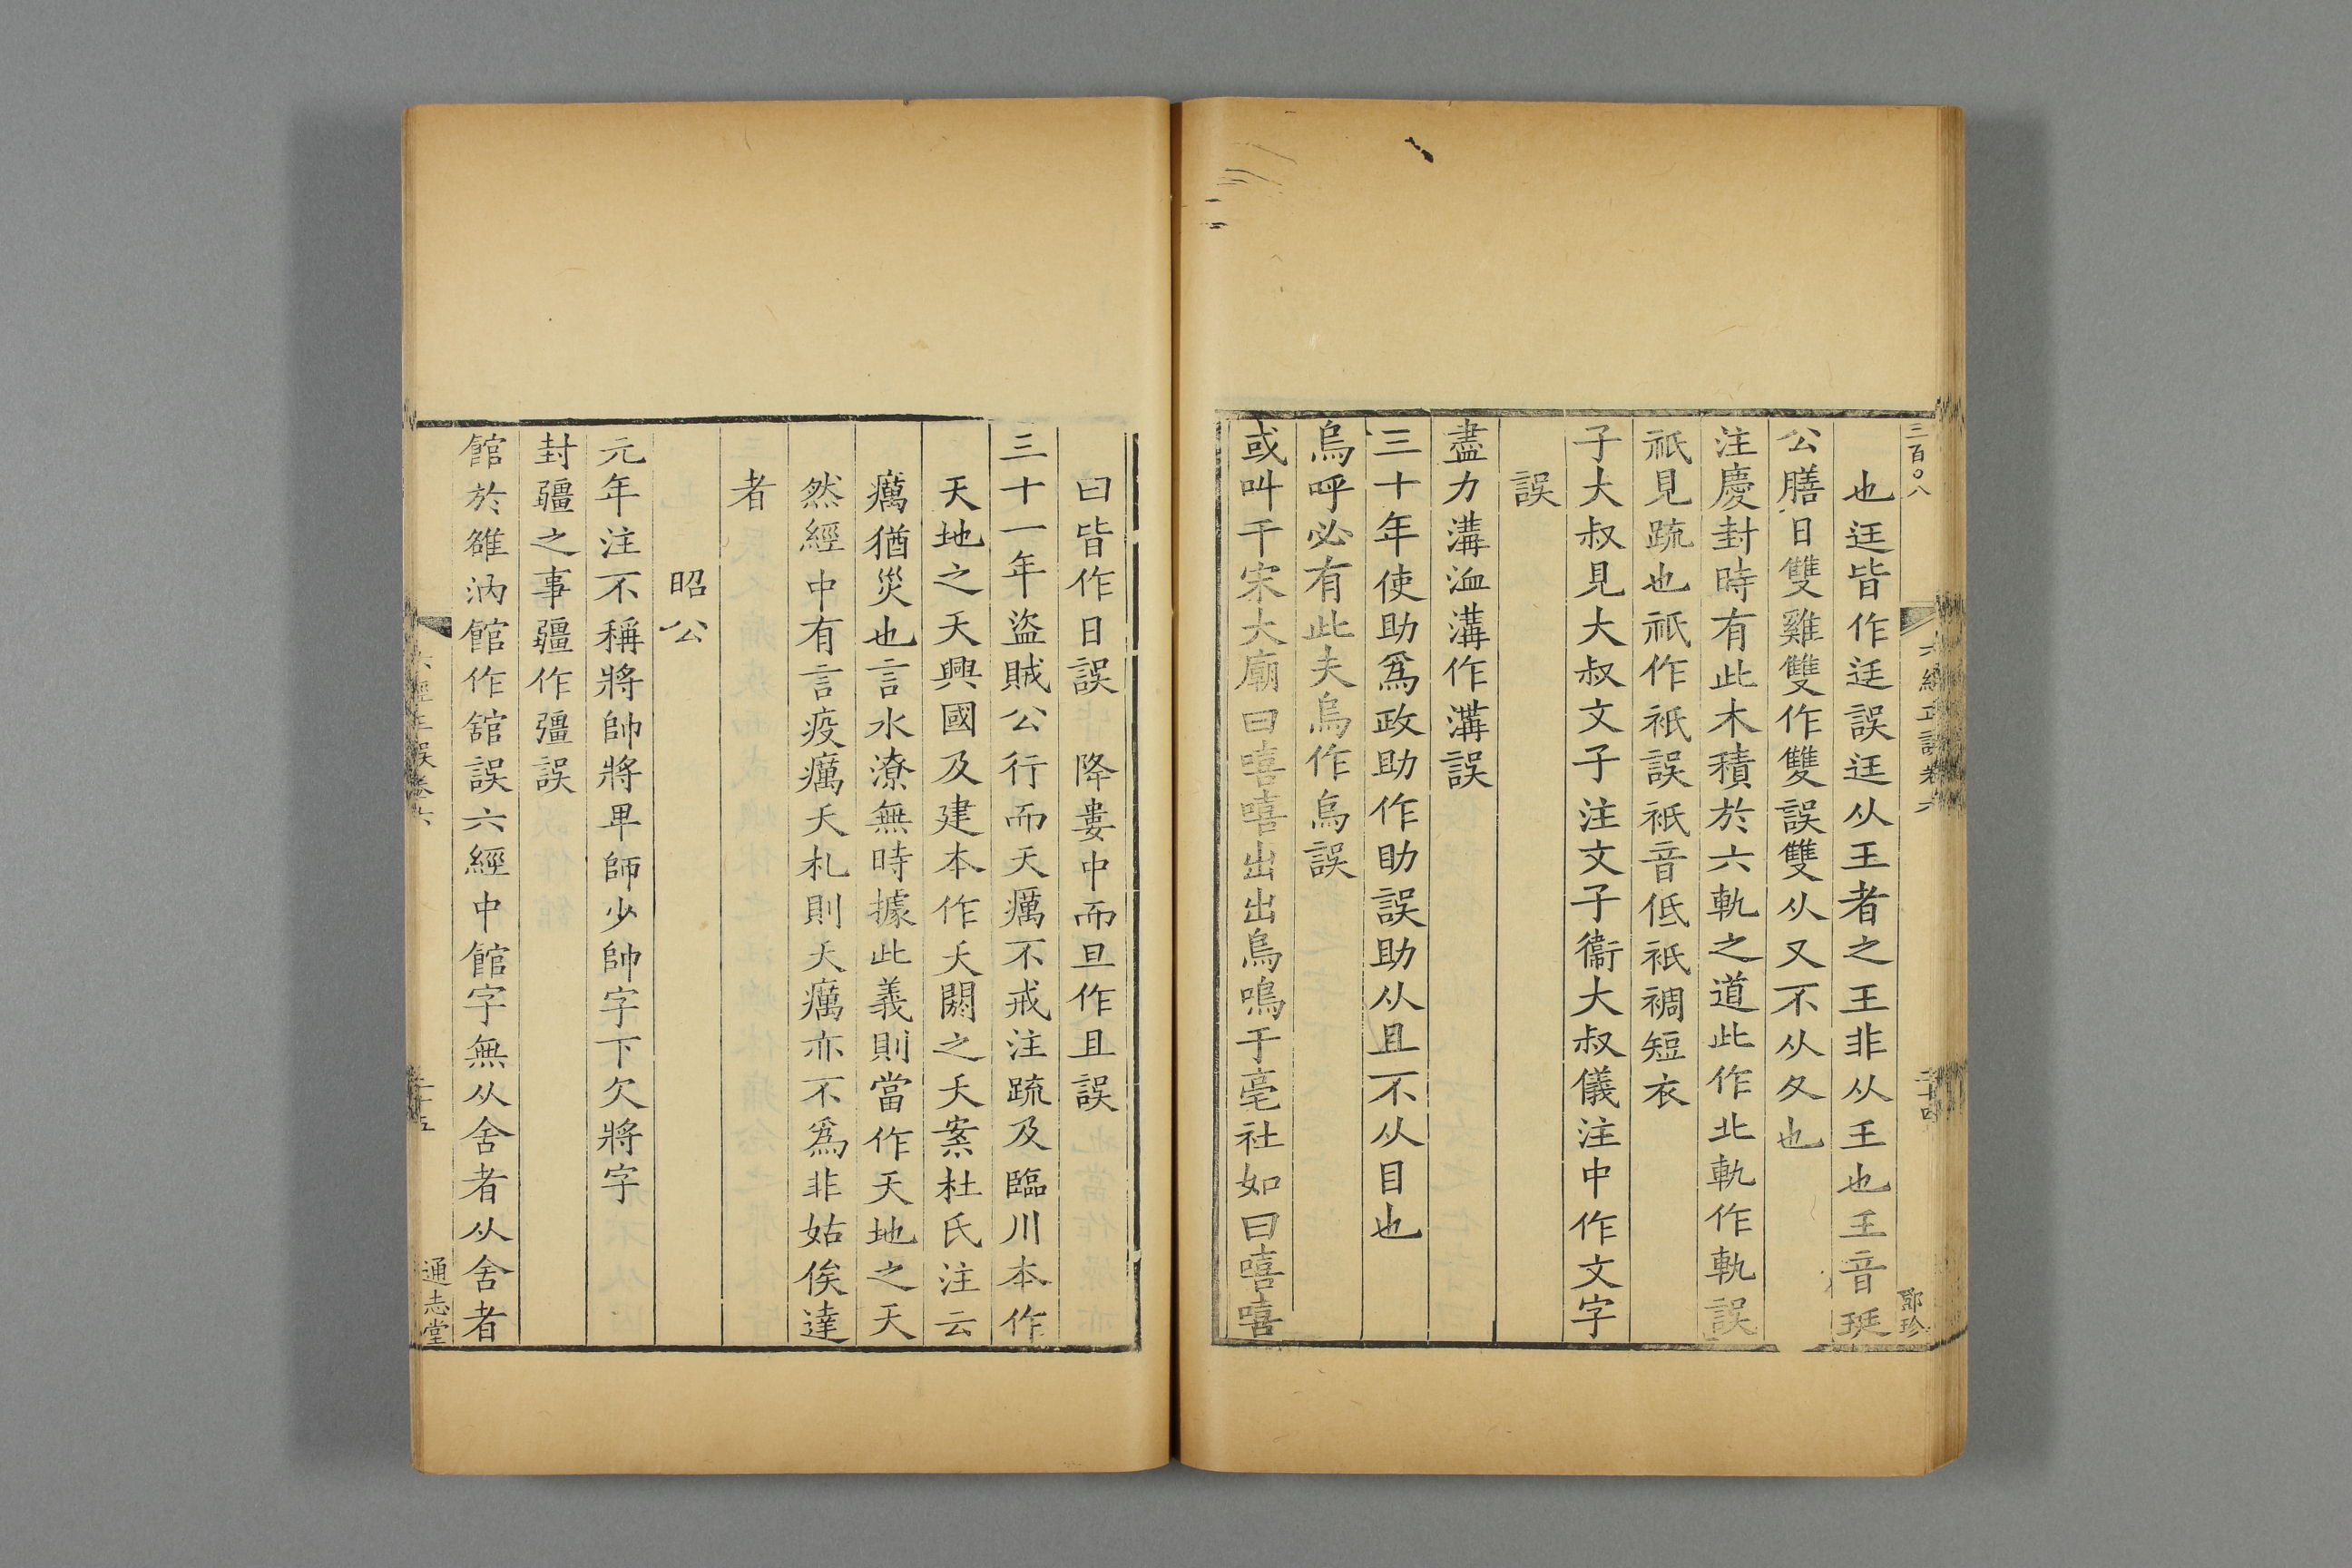 三百〇八
六經正誤卷六
二十四
鄧珍
也廷皆作廷誤廷从王者之王非从王也𡈼音珽
公膳日雙雞雙作雙誤雙从又不从夂也
注慶封時有此木積於六軌之道此作北軌作軌誤
祇見疏也祇作衹誤衹音低衹裯短衣
子大叔見大叔文子注文子衞大叔儀注中作文字
誤
盡力溝洫溝作溝誤
三十年使助爲政助作助誤助从且不从目也
烏呼必有此夫烏作鳥誤
或叫于宋大廟曰嘻嘻出出鳥鳴于亳社如曰嘻嘻
曰皆作日誤 降婁中而旦作且誤
三十一年盜賊公行而天癘不戒注疏及臨川本作
天地之天興國及建本作夭閼之夭案杜氏注云
癘猶災也言水潦無時據此義則當作天地之天
然經中有言疫癘夭札則夭癘亦不爲非姑俟達
者
昭公
元年注不稱將帥將卑師少帥字下欠將字
封疆之事疆作彊誤
館於雒汭館作舘誤六經中館字無从舍者从舍者
六經正誤卷六
二十五
通志堂